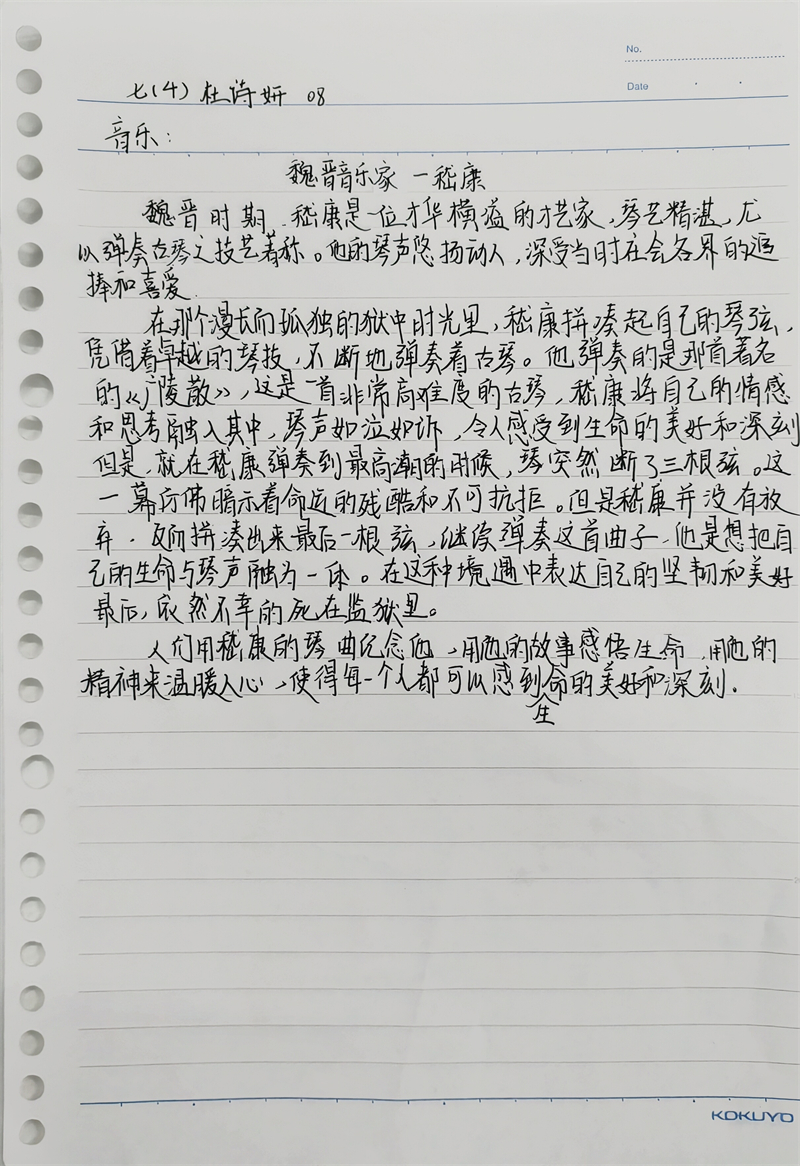 No.
Date
七(4) 杜诗妍 08
音乐:
魏晋音乐家 一嵇康
魏晋时期,嵇康是一位才华横溢的才艺家,琴艺精湛,尤
以弹奏古琴之技艺著称。他的琴声悠扬动人,深受当时社会各界的追
捧和喜爱.
在那个漫长而孤独的狱中时光里,嵇康拼凑起自己的琴弦,
凭借着卓越的琴技,不断地弹奏着古琴。他弹奏的是那首著名
的《广陵散》,这是一首非常高难度的古琴,嵇康将自己的情感
和思考融入其中,琴声如泣如诉,令人感受到生命的美好和深刻
但是,就在嵇康弹奏到最高潮的时候,琴突然断了三根弦。这
一幕仿佛暗示着命运的残酷和不可抗拒。但是嵇康并没有放
弃.反而拼凑出来最后一根弦,继续弹奏这首曲子,他是想把自
己的生命与琴声融为一体。在这种境遇中表达自己的坚韧和美好
最后,依然不幸的死在监狱里。
人们用嵇康的琴曲纪念他,用他的故事感悟生命,用他的
精神来温暖人心,使得每一个人都可以感到生命的美好和深刻.
KOKUYO